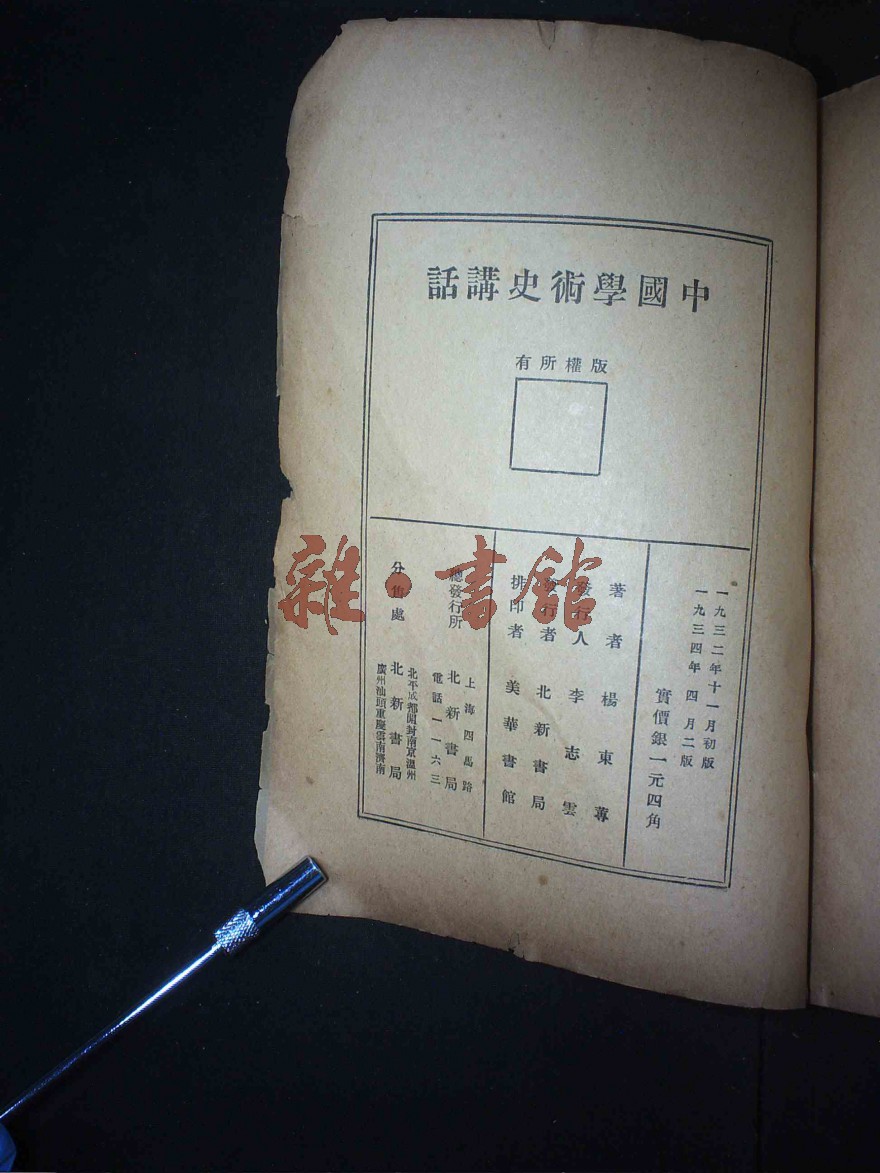 中國學術史講話
版權所有
一九三二年十一月初版
一九三四年四月二版
實價銀一元四角
著者 楊東蓴
發行人 李志雲
發行者 北新書局
排印者 美華書館
總發行所 上海四馬路
北新書局
電話一一六三
分售處 北平成都開封南京溫州
北新書局
廣州汕頭重慶雲南濟南
雜·書館